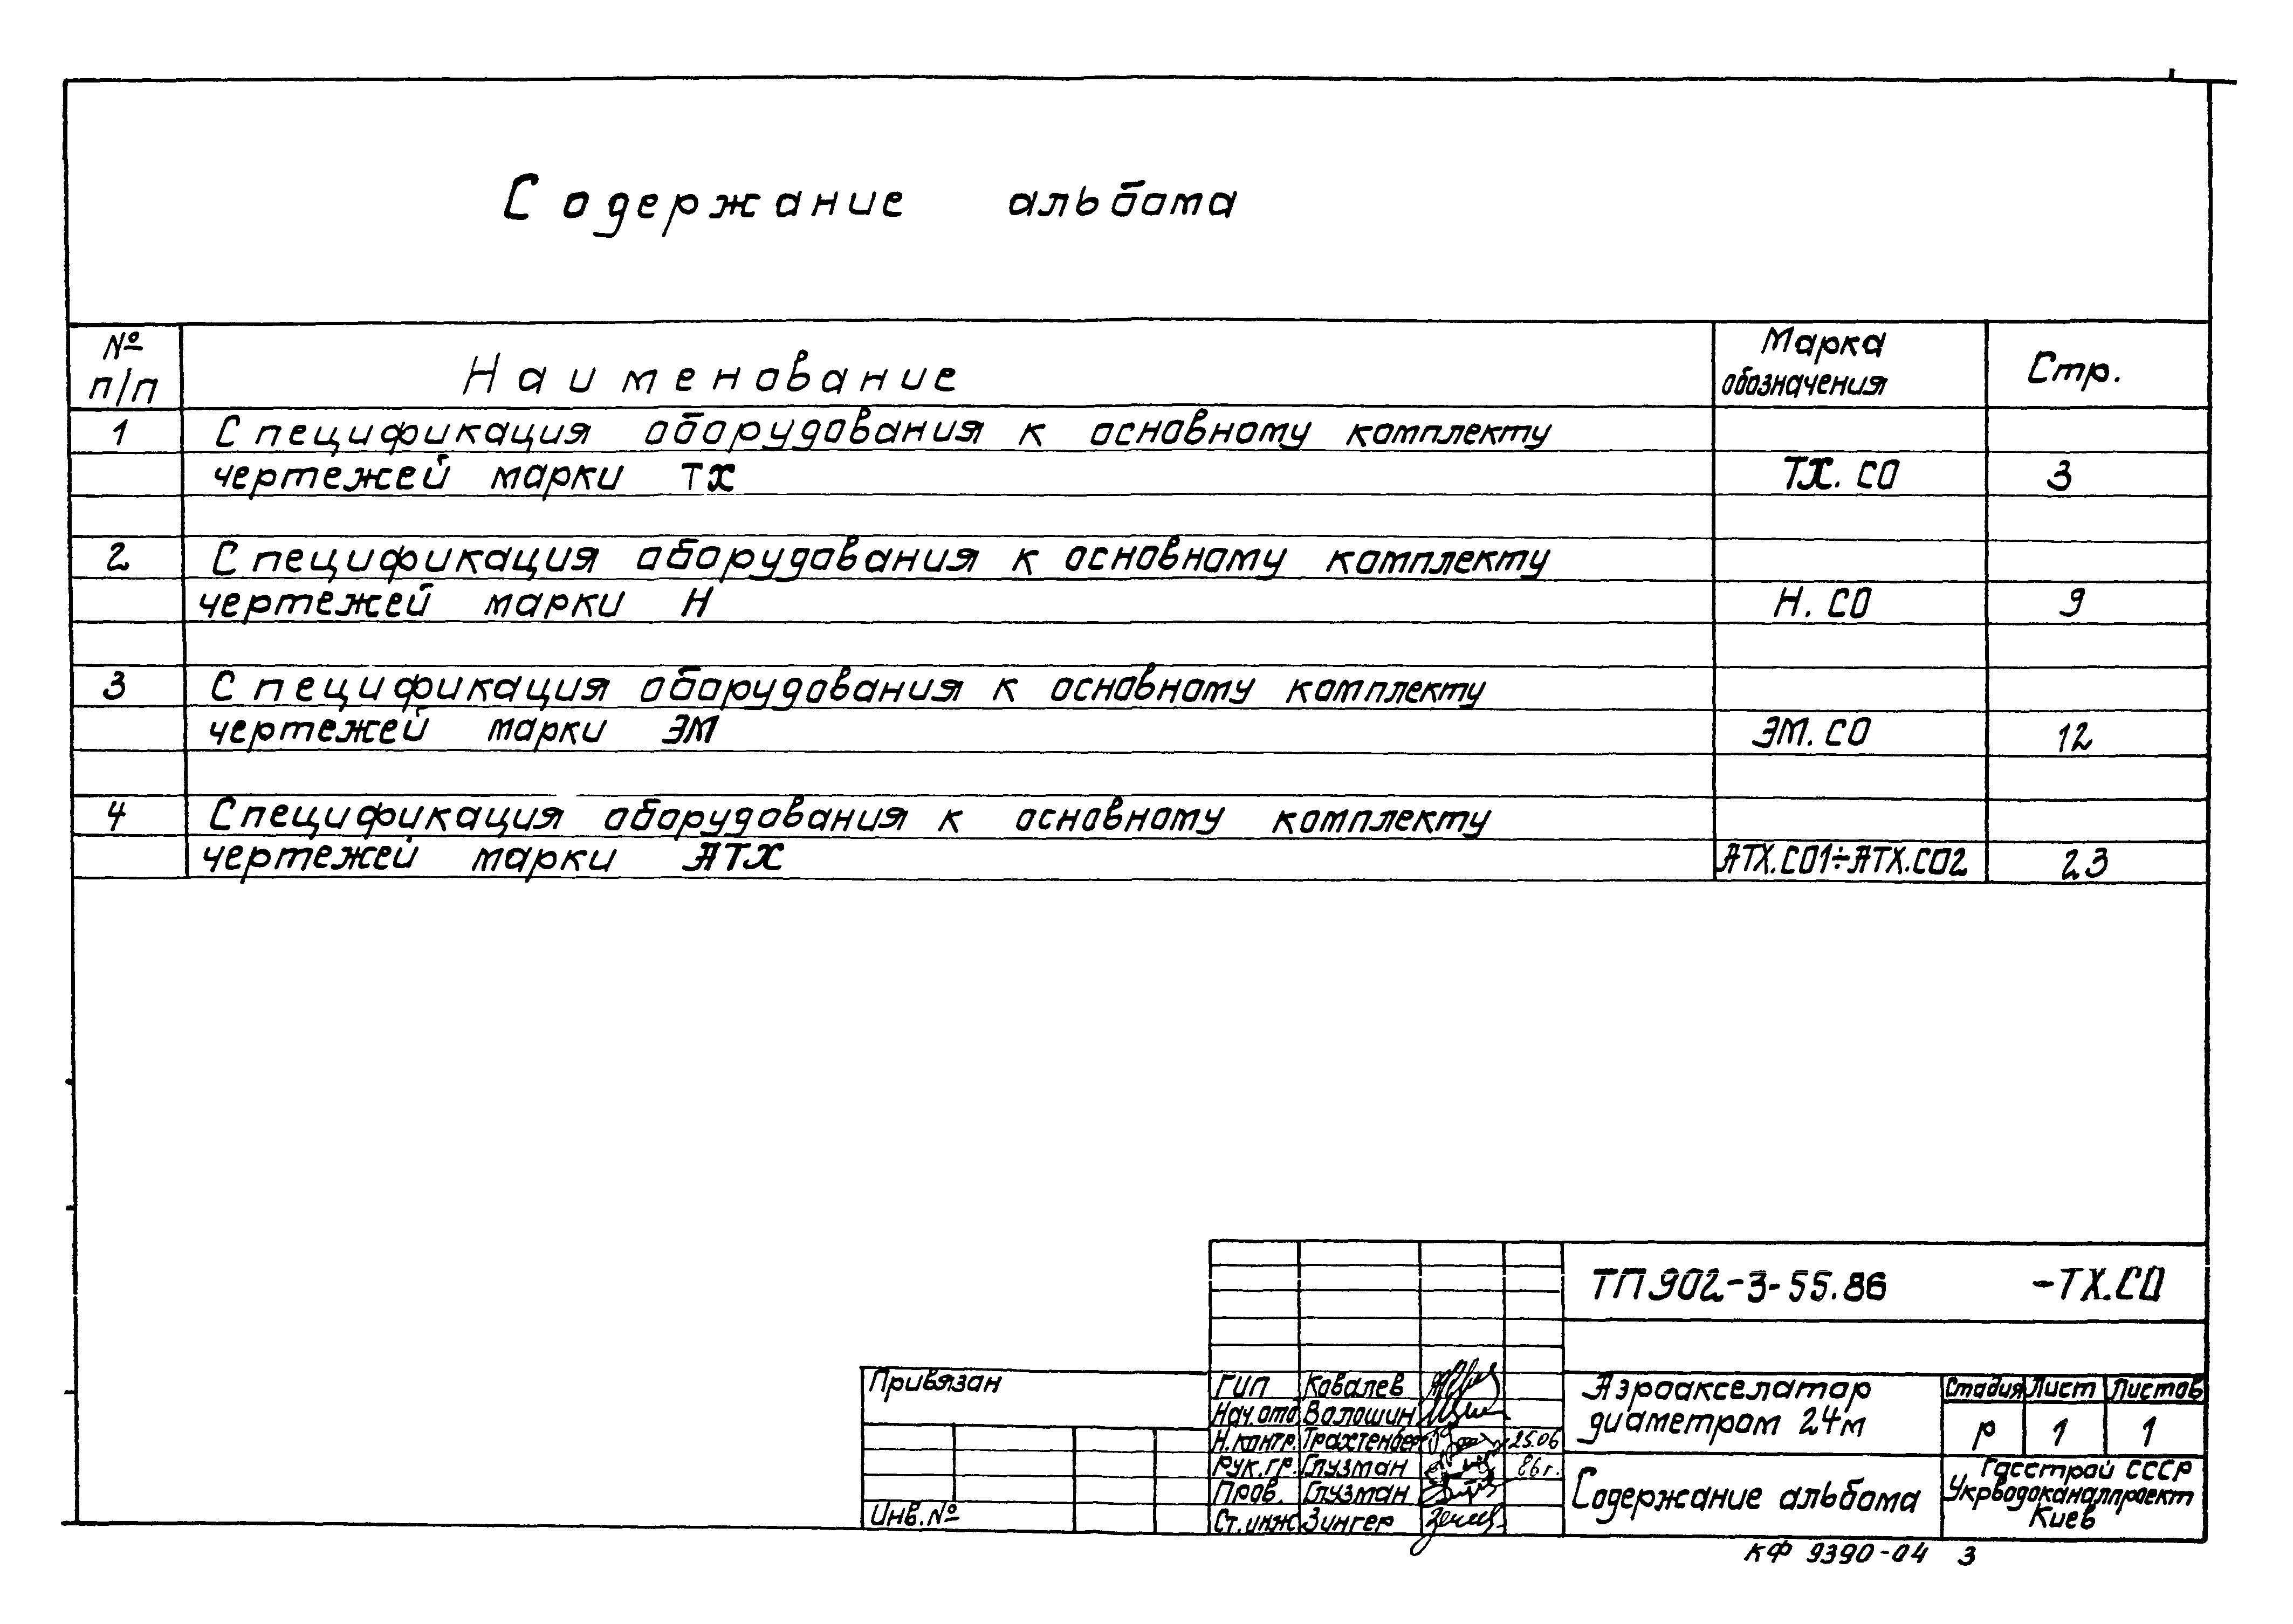 Содержание альбома
№ п/п Наименование Марка обозначения Стр.
1 Спецификация оборудования к основному комплекту
чертежей марки ТХ ТХ.СО 3
2 Спецификация оборудования к основному комплекту
чертежей марки Н Н.СО 9
3 Спецификация оборудования к основному комплекту
чертежей марки ЭМ ЭМ.СО 12
4 Спецификация оборудования к основному комплекту
чертежей марки АТХ АТХ.СО1÷АТХ.СО2 23
ТП 902-3-55.86 -ТХ.СО
Привязан
Инв.№
ГИП Ковалев
Нач.отд Волошин
Н.контр. Трахтенберг 25.06
Рук.гр. Глузман 86г.
Пров. Глузман
Ст.инж Зингер
Аэроакселатор
диаметром 24м
Стадия Лист Листов
Р 1 1
Содержание альбома
Госстрой СССР
Укрводоканалпроект
Киев
КФ 9390-04 3